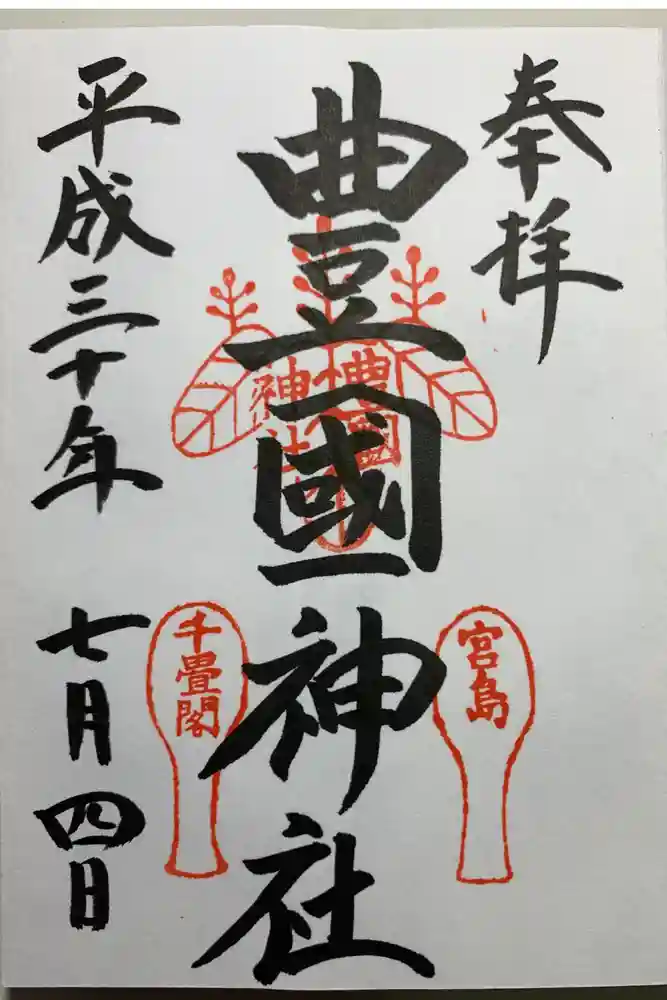 奉拝
宮島
豊國神社
豊國
神社
千畳閣
平成三十年 七月四日